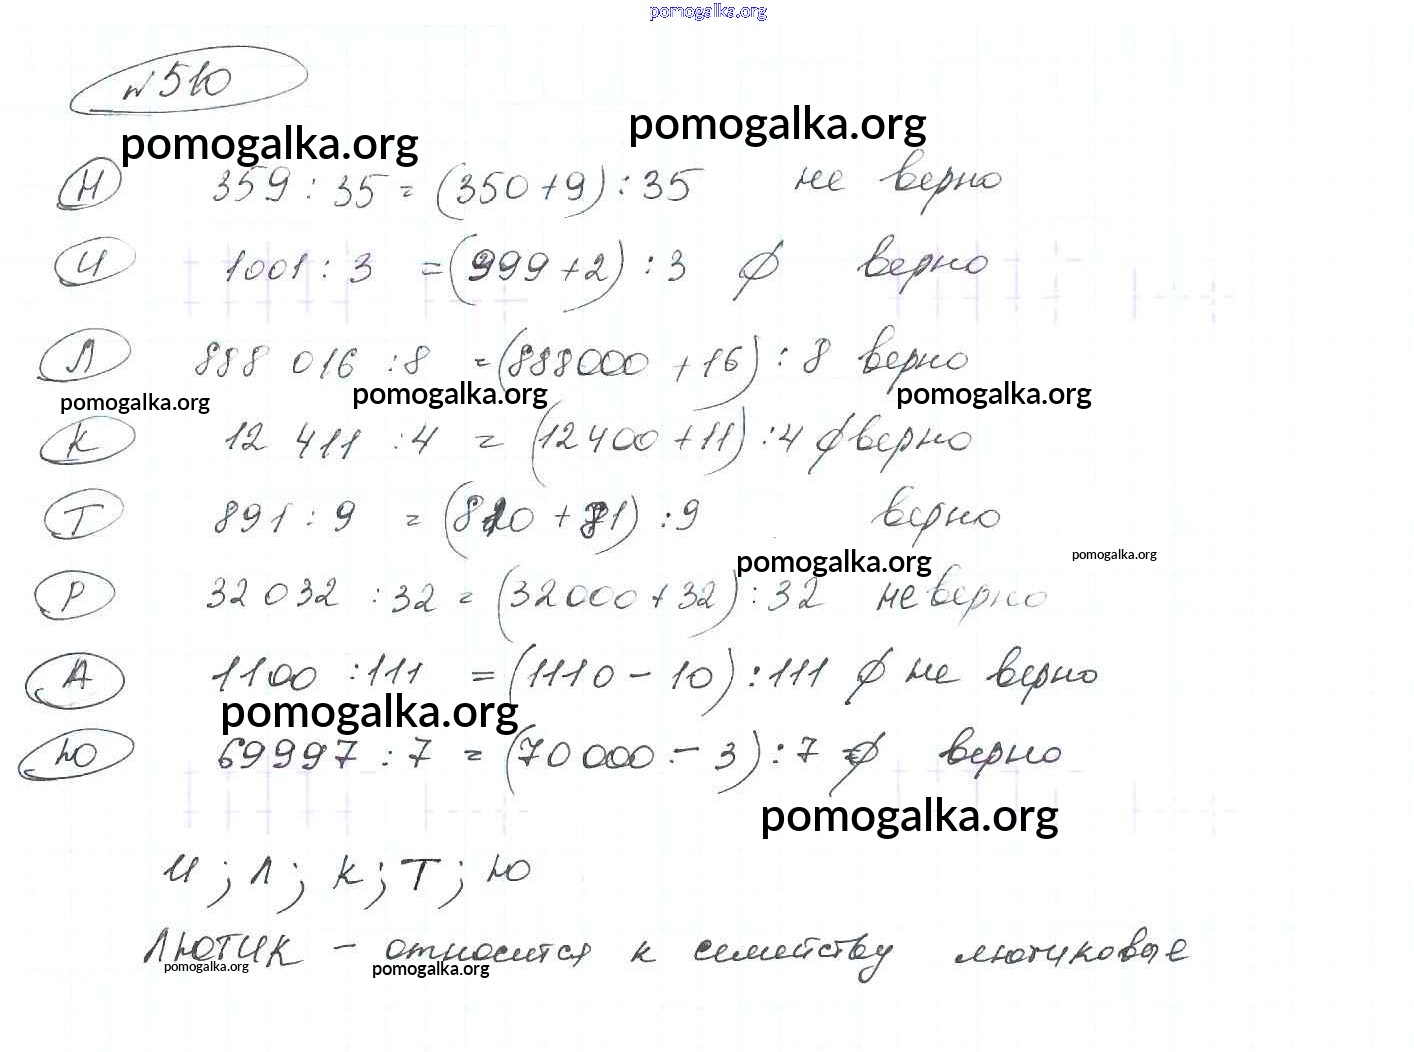 pomogalka.org
№510
pomogalka.org pomogalka.org
Н 359 : 35 = (350 + 9) : 35 не верно
И 1001 : 3 = (999 + 2) : 3 ∅ верно
Л 888 016 : 8 = (888000 + 16) : 8 верно
pomogalka.org pomogalka.org pomogalka.org
К 12 411 : 4 = (12400 + 11) : 4 ∅ верно
Т 891 : 9 = (810 + 81) : 9 верно
pomogalka.org pomogalka.org
Р 32 032 : 32 = (32000 + 32) : 32 не верно
А 1100 : 111 = (1110 - 10) : 111 ∅ не верно
pomogalka.org
Ю 69997 : 7 = (70 000 - 3) : 7 ∅ верно
pomogalka.org
И ; Л ; К ; Т ; Ю
ЛЮТИК - относится к семейству лютиковые
pomogalka.org pomogalka.org